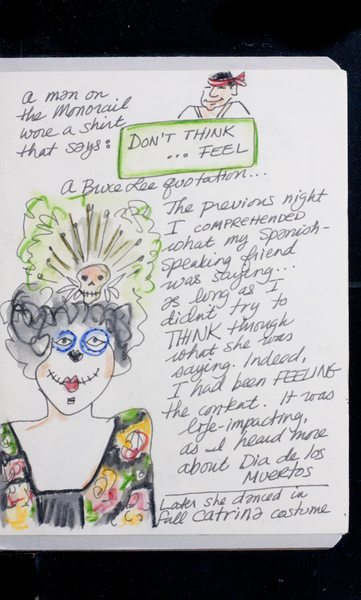 a man on
the Monorail
wore a shirt
that says:
DON'T THINK
... FEEL
a Bruce Lee quotation...
The previous night
I COMPREHENDED
what my Spanish-
speaking friend
was saying...
as long as I
didn't try to
THINK through
what she was
saying. Indeed,
I had been FEELING
the content. It was
life-impacting,
as I heard more
about Dia de los
MUERTOS
Later she danced in
full Catrina costume